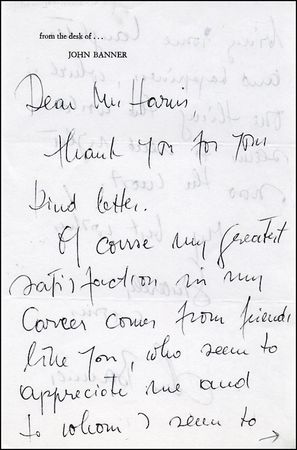 from the desk of . . .
JOHN BANNER
Dear Mr Harris
Thank you for your
kind letter.
Of course my greatest
satisfaction in my
career comes from friends
like you, who seem to
appreciate me and
to whom I seem to